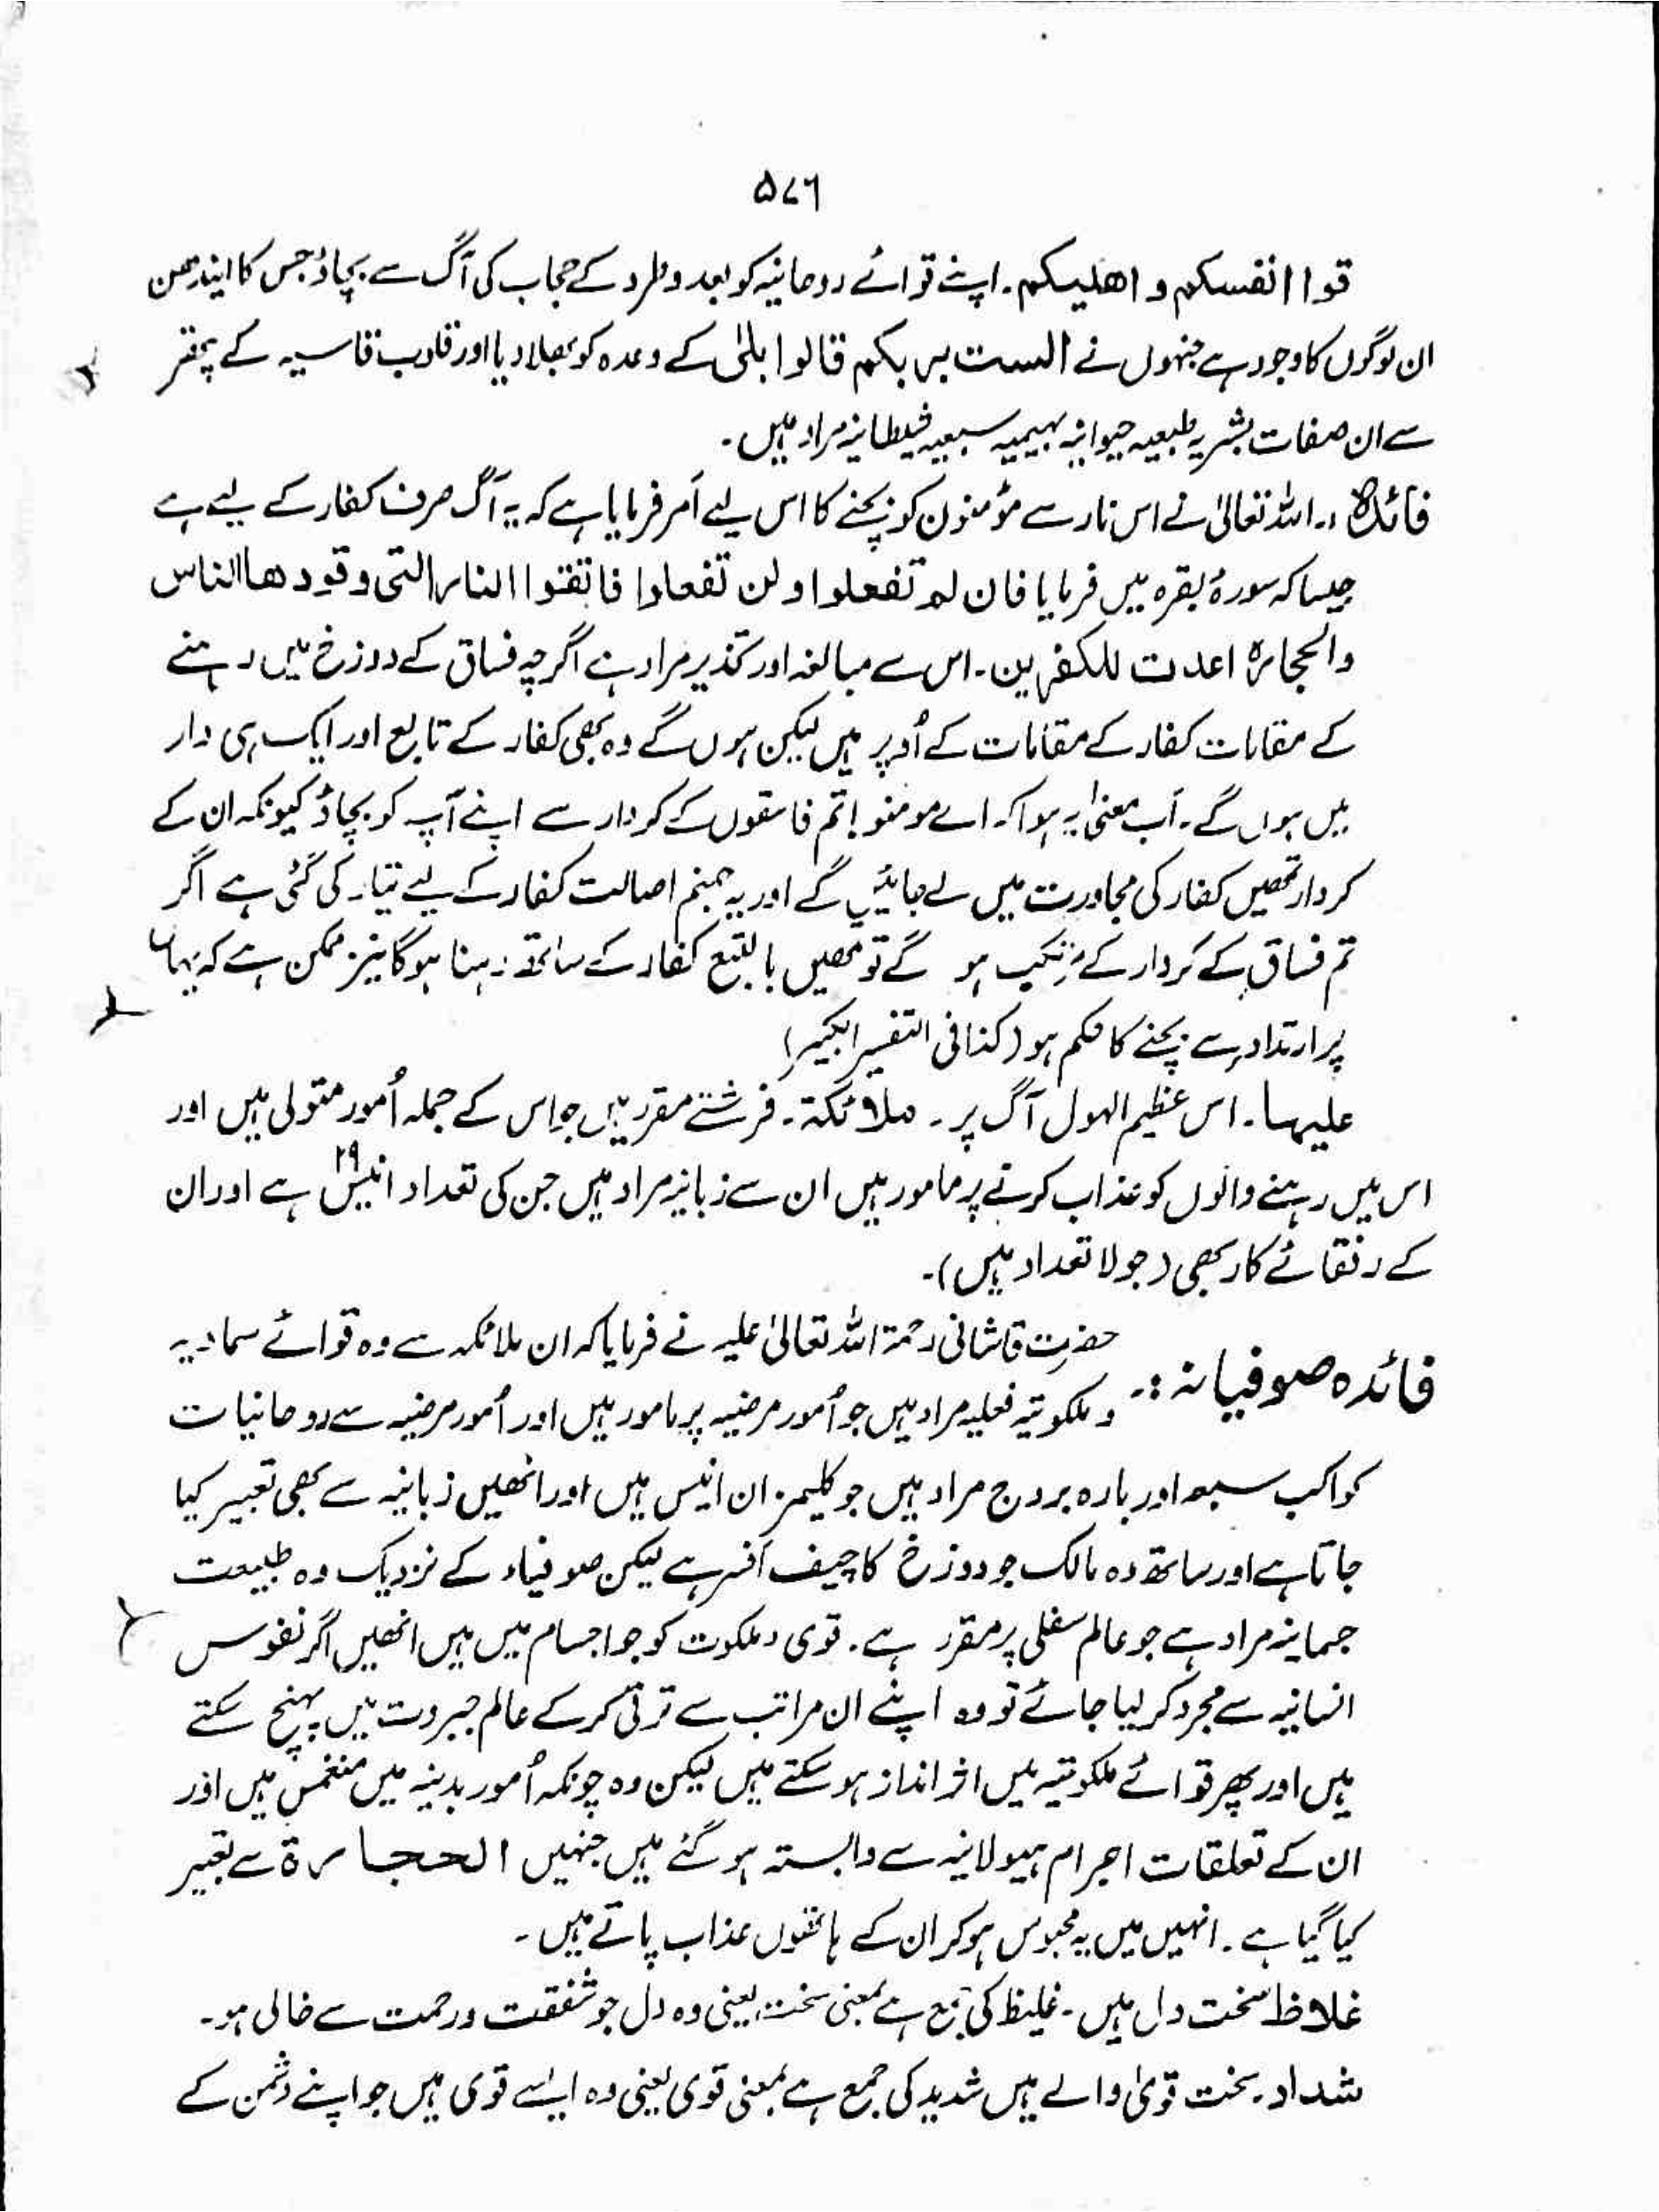 ۵۷۶
قوا انفسکم و اھلیکم۔ اپنے قوائے روحانیہ کو بعد و طرد کے حجاب کی آگ سے بچاؤ جس کا ایندھن
ان لوگوں کا وجود ہے جنہوں نے الست بربکم قالوا بلیٰ کے وعدہ کو بھلا دیا اور قلوب قاسیہ کے پتھر
سے ان صفات بشریہ طبعیہ حیوانیہ بہیمیہ سبعیہ شیطانیہ مراد ہیں۔
فائدہ :۔ اللہ تعالیٰ نے اس نار سے مؤمنون کو بچنے کا اس لیے اَمر فرمایا ہے کہ یہ آگ صرف کفار کے لیے ہے
جیسا کہ سورۂ بقرہ میں فرمایا فان لم تفعلوا ولن تفعلوا فاتقوا النار التی وقودھا الناس
والحجارۃ اعدت للکفرین۔ اس سے مبالغہ اور تحذیر مراد ہے اگرچہ فساق کے دوزخ میں رہنے
کے مقامات کفار کے مقامات کے اُوپر ہیں لیکن ہوں گے وہ بھی کفار کے تابع اور ایک ہی دار
میں ہوں گے۔ اَب معنیٰ یہ ہوا کہ اے مومنو! تم فاسقوں کے کردار سے اپنے آپ کو بچاؤ کیونکہ ان کے
کردار تمھیں کفار کی مجاورت میں لے جائیں گے اور یہ جہنم اصالت کفار کے لیے تیار کی گئی ہے اگر
تم فساق کے کردار کے مرتکب ہو گے تو تمھیں بالتبع کفار کے ساتھ رہنا ہوگا نیز ممکن ہے کہ یہاں
پر ارتداد سے بچنے کا حکم ہو (کذا فی التفسیر الکبیر)
علیہا۔ اس عظیم الہول آگ پر۔ ملائکۃ۔ فرشتے مقرر ہیں جو اس کے جملہ اُمور متولی ہیں اور
اس میں رہنے والوں کو عذاب کرنے پر مامور ہیں ان سے زبانیہ مراد ہیں جن کی تعداد انیس ۱۹ ہے اور ان
کے رفقائے کار بھی (جو لاتعداد ہیں)۔
فائدہ صوفیانہ :۔ حضرت قاشانی رحمۃ اللہ تعالیٰ علیہ نے فرمایا کہ ان ملائکہ سے وہ قوائے سماویہ
و ملکوتیہ فعلیہ مراد ہیں جو اُمور مرضیہ پر مامور ہیں اور اُمور مرضیہ سے روحانیات
کواکب سبعہ اور بارہ بروج مراد ہیں جو کلیمزان انیس ہیں اور انھیں زبانیہ سے بھی تعبیر کیا
جاتا ہے اور ساتھ وہ مالک جو دوزخ کا چیف اَفسر ہے لیکن صوفیاء کے نزدیک وہ طبیعت
جمانیہ مراد ہے جو عالم سفلی پر مقرر ہے۔ قوی و ملکوت کو جو اجسام میں ہیں انھیں اگر نفوس
انسانیہ سے مجرد کر لیا جائے تو وہ اپنے ان مراتب سے ترقی کر کے عالم جبروت میں پہنچ سکتے
ہیں اور پھر قوائے ملکوتیہ میں اثر انداز ہو سکتے ہیں لیکن وہ چونکہ اُمور بدنیہ میں منغمس ہیں اور
ان کے تعلقات اجرام ہیولانیہ سے وابستہ ہو گئے ہیں جنہیں الحجارۃ سے تعبیر
کیا گیا ہے۔ انہیں میں یہ محبوس ہو کر ان کے ہاتھوں عذاب پاتے ہیں۔
غلاظ سخت دل ہیں۔ غلیظ کی جمع ہے بمعنی سخت یعنی وہ دل جو شفقت ورحمت سے خالی ہو۔
شداد۔ سخت قویٰ والے ہیں شدید کی جمع ہے بمعنی قوی یعنی وہ ایسے قوی ہیں جو اپنے دشمن کے